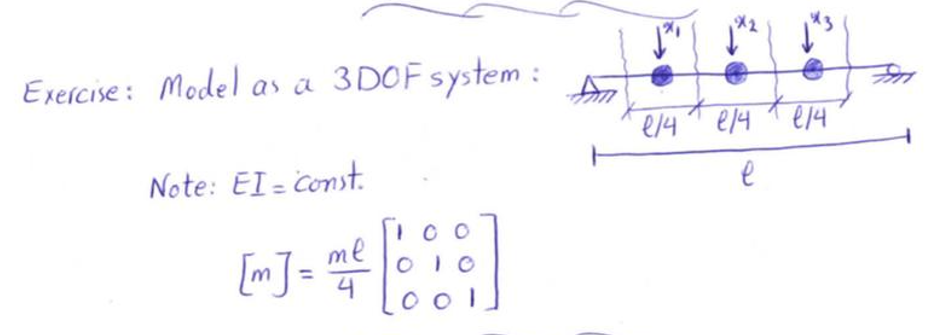 Exercise: Model as a 3DOF system:
x₁ x₂ x₃
l/4 l/4 l/4
l
Note: EI = const.
[m] = ml/4 [1 0 0
0 1 0
0 0 1]